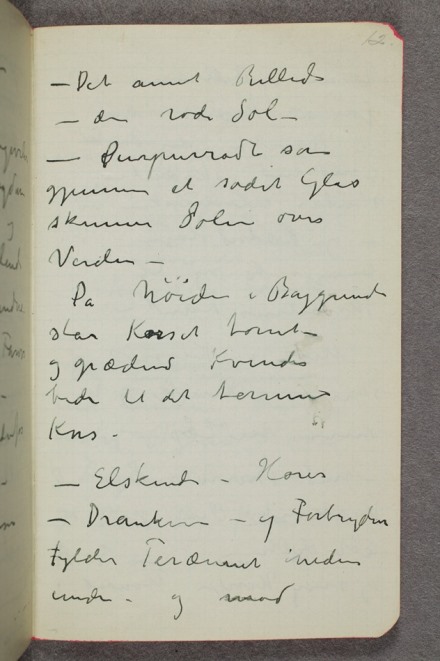 62.
– Det annet Billede
– den røde Sol –
– Purpurrødt som
gjennem et sodet Glas
skinner Solen over
Verden –
På Höiden i Baggrunden
står Korset tomt –
og grædende Kvinder
beder til det tomme
Kors –
– Elskende – Horer
– Drankere – og Forbrydere
fylder Terænnet neden
under – og